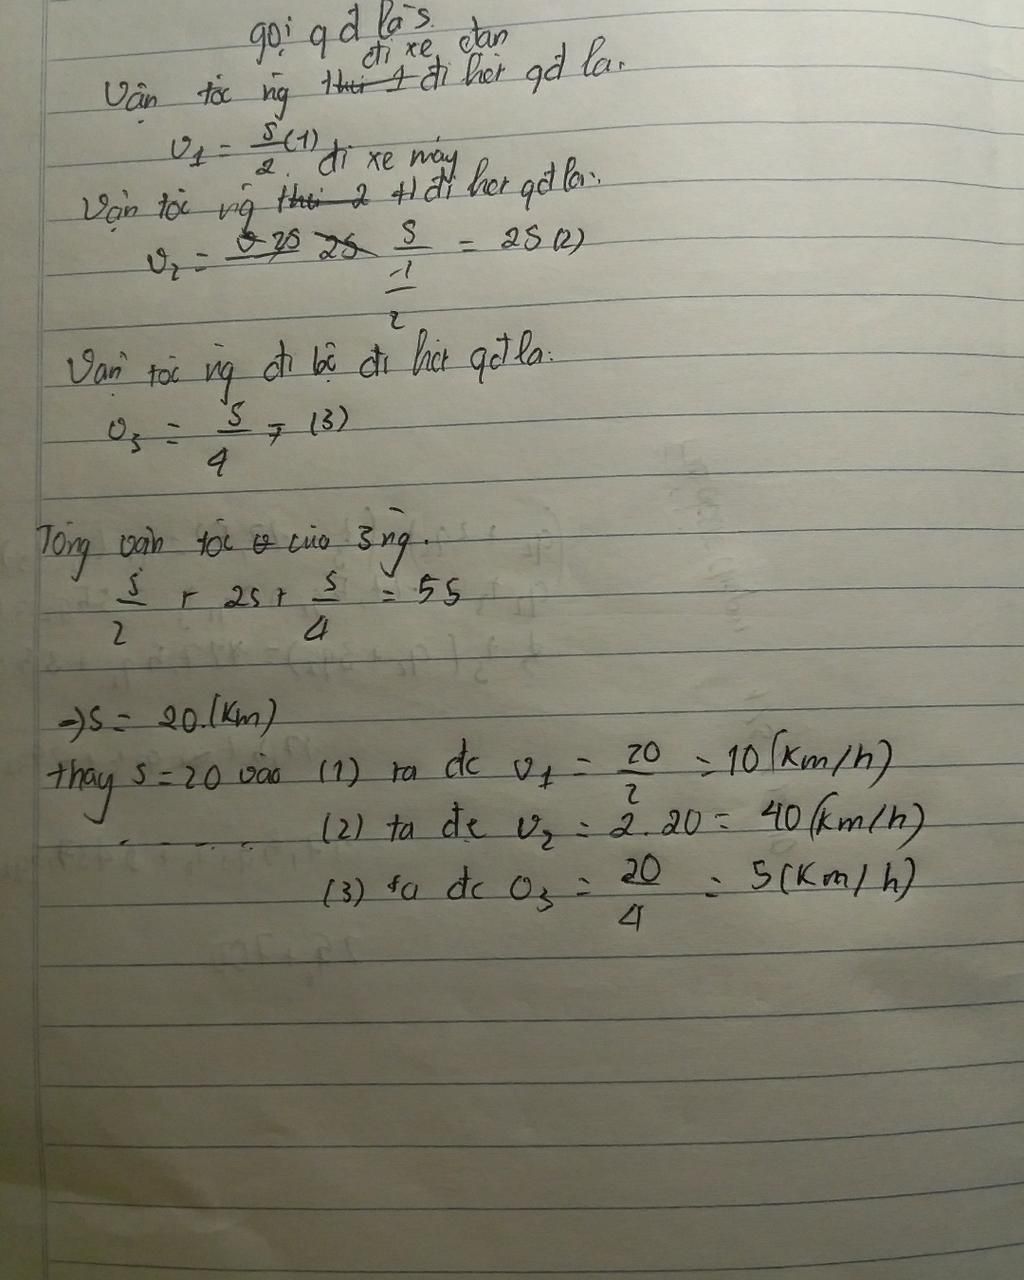 gọi qđ là s.
đi xe đạp
Vận tốc ng thứ 1 đi hết qđ là:
v1 = s/2 (1)
đi xe máy
Vận tốc ng thứ 2 đi hết qđ là:
v2 = 2s s/(1/2) = 2s (2)
Vận tốc ng đi bộ đi hết qđ là:
v3 = s/4 (3)
Tổng vận tốc của 3 ng.
s/2 + 2s + s/4 = 55
=> s = 20 (Km)
thay s = 20 vào (1) ta đc v1 = 20/2 = 10 (km/h)
. - . . . . (2) ta đc v2 = 2.20 = 40 (km/h)
(3) ta đc v3 = 20/4 = 5 (Km/h)